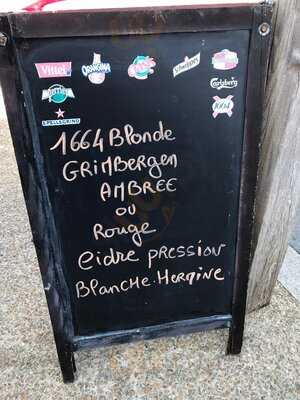 Vittel
ORANGINA
Schweppes
Carlsberg
1664
S.PELLEGRINO
1664 Blonde
GRIMBERGEN
AMBREE
ou
Rouge
Cidre pression
Blanche. Hermine